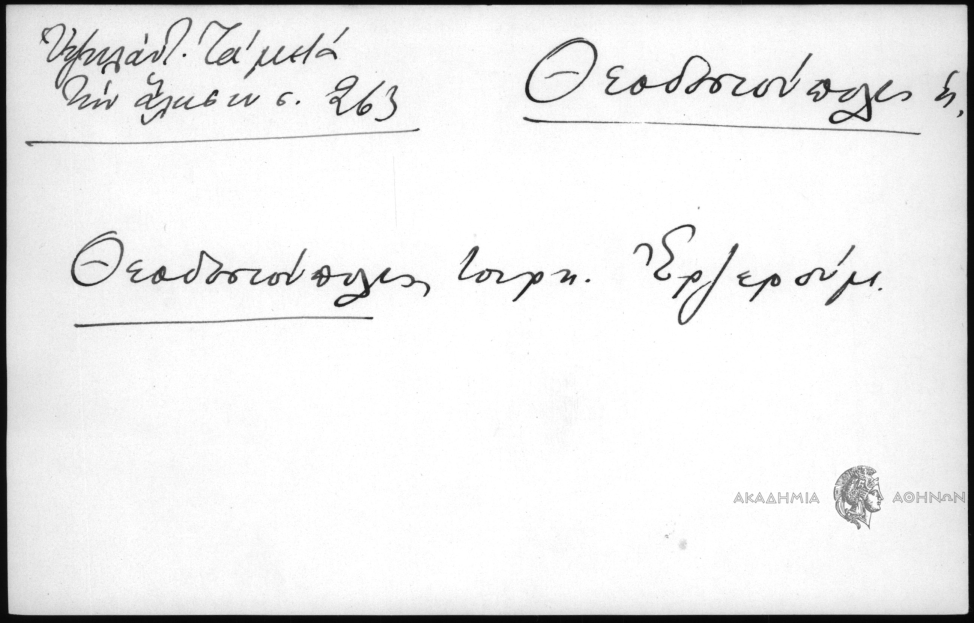 Ὑψηλάντ. Τά μετά
τήν ἅλωσιν σ. 263
Θεοδοσιούπολις ἡ,
Θεοδοσιούπολις, τουρκ. Ἐρζερούμ.
ΑΚΑΔΗΜΙΑ ΑΘΗΝΩΝ